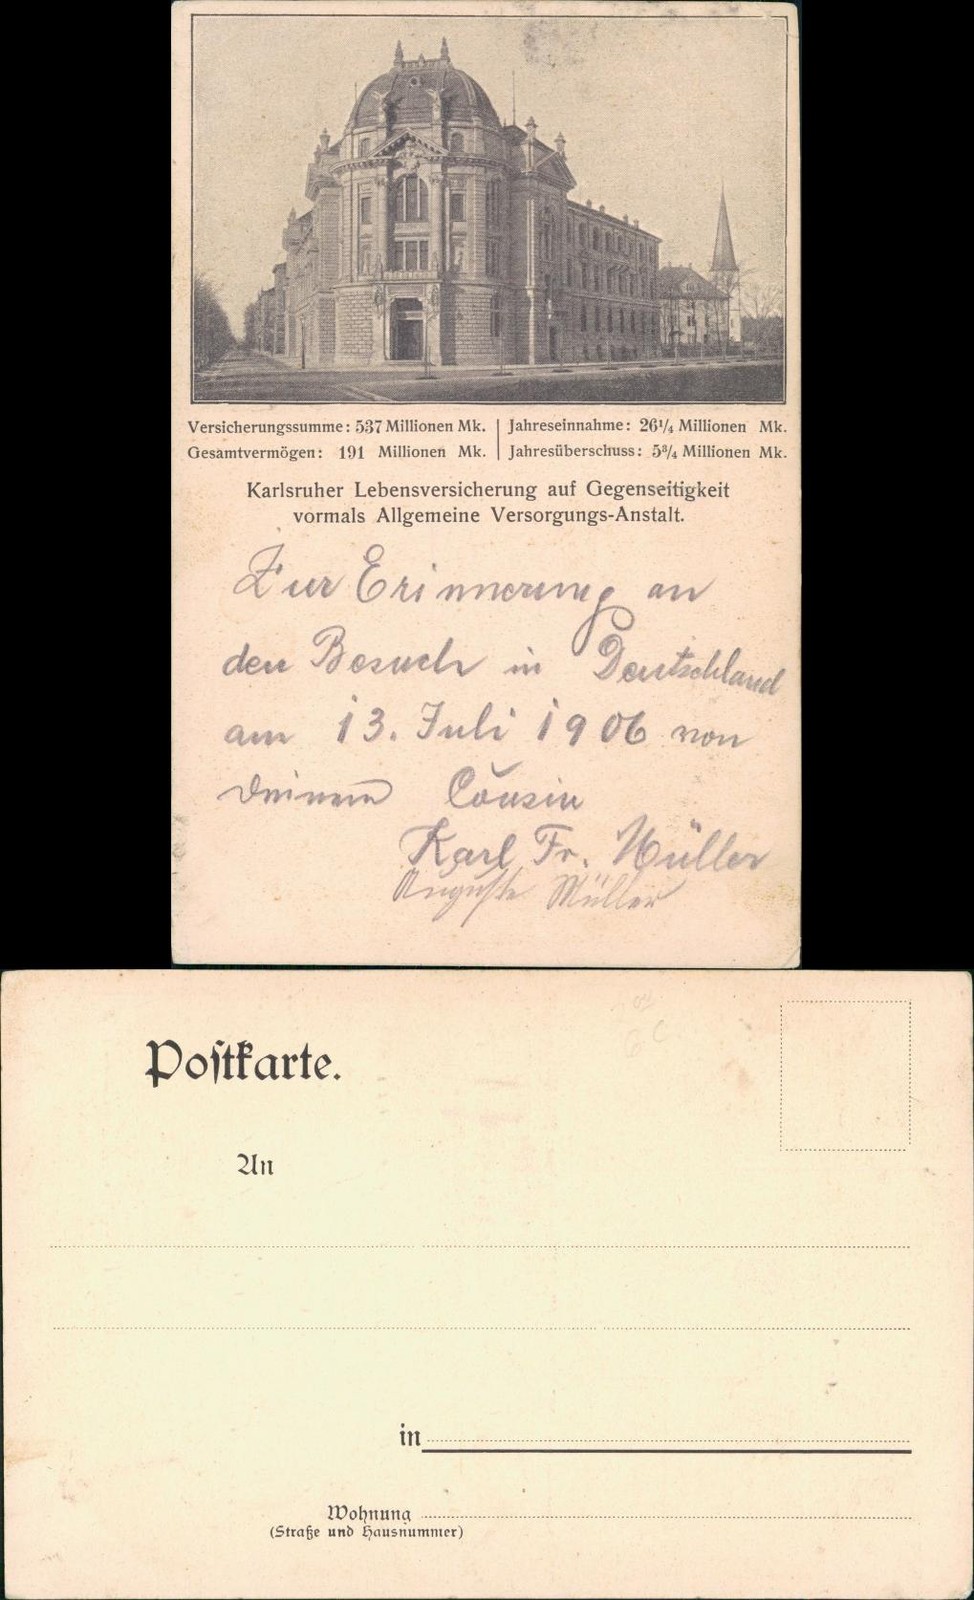 Versicherungssumme: 537 Millionen Mk. | Jahreseinnahme: 26¼ Millionen Mk.
Gesamtvermögen: 191 Millionen Mk. | Jahresüberschuss: 5¾ Millionen Mk.
Karlsruher Lebensversicherung auf Gegenseitigkeit
vormals Allgemeine Versorgungs-Anstalt.
Zur Erinnerung an
den Besuch in Deutschland
am 13. Juli 1906 von
Deinem Cousin
Karl Fr. Müller
Auguste Müller
Poſtkarte.
An
in
Wohnung
(Straße und Hausnummer)